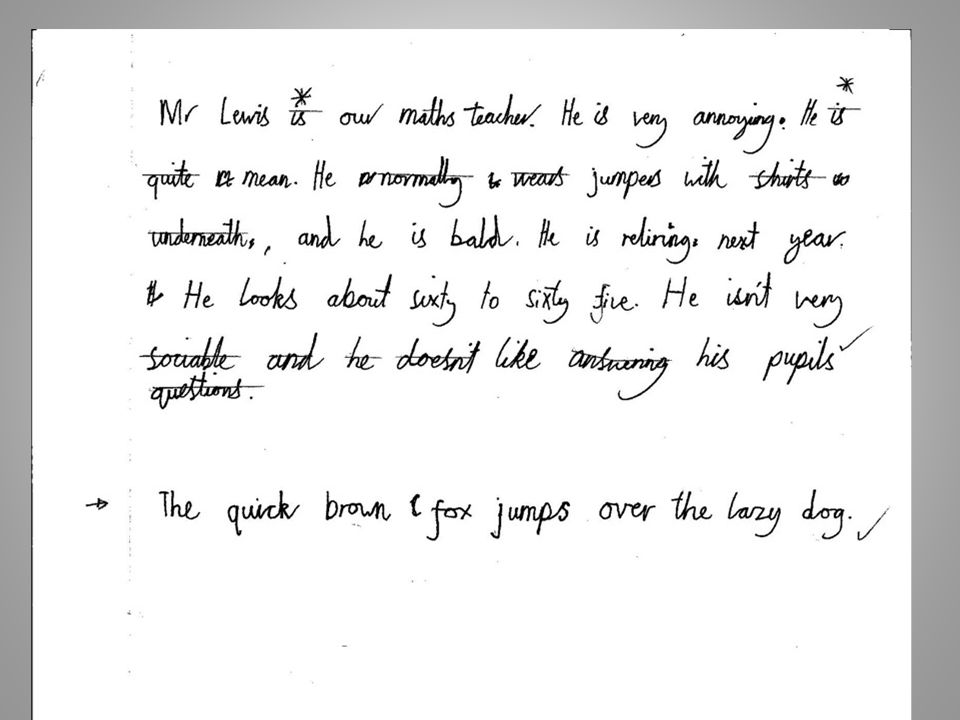 Mr Lewis is* our maths teacher. He is very annoying. He is*
quite mean. He normally wears jumpers with shirts
underneath, and he is bald. He is retiring next year.
He looks about sixty to sixty five. He isn't very
sociable and he doesn't like answering his pupils
questions.
→ The quick brown fox jumps over the lazy dog.